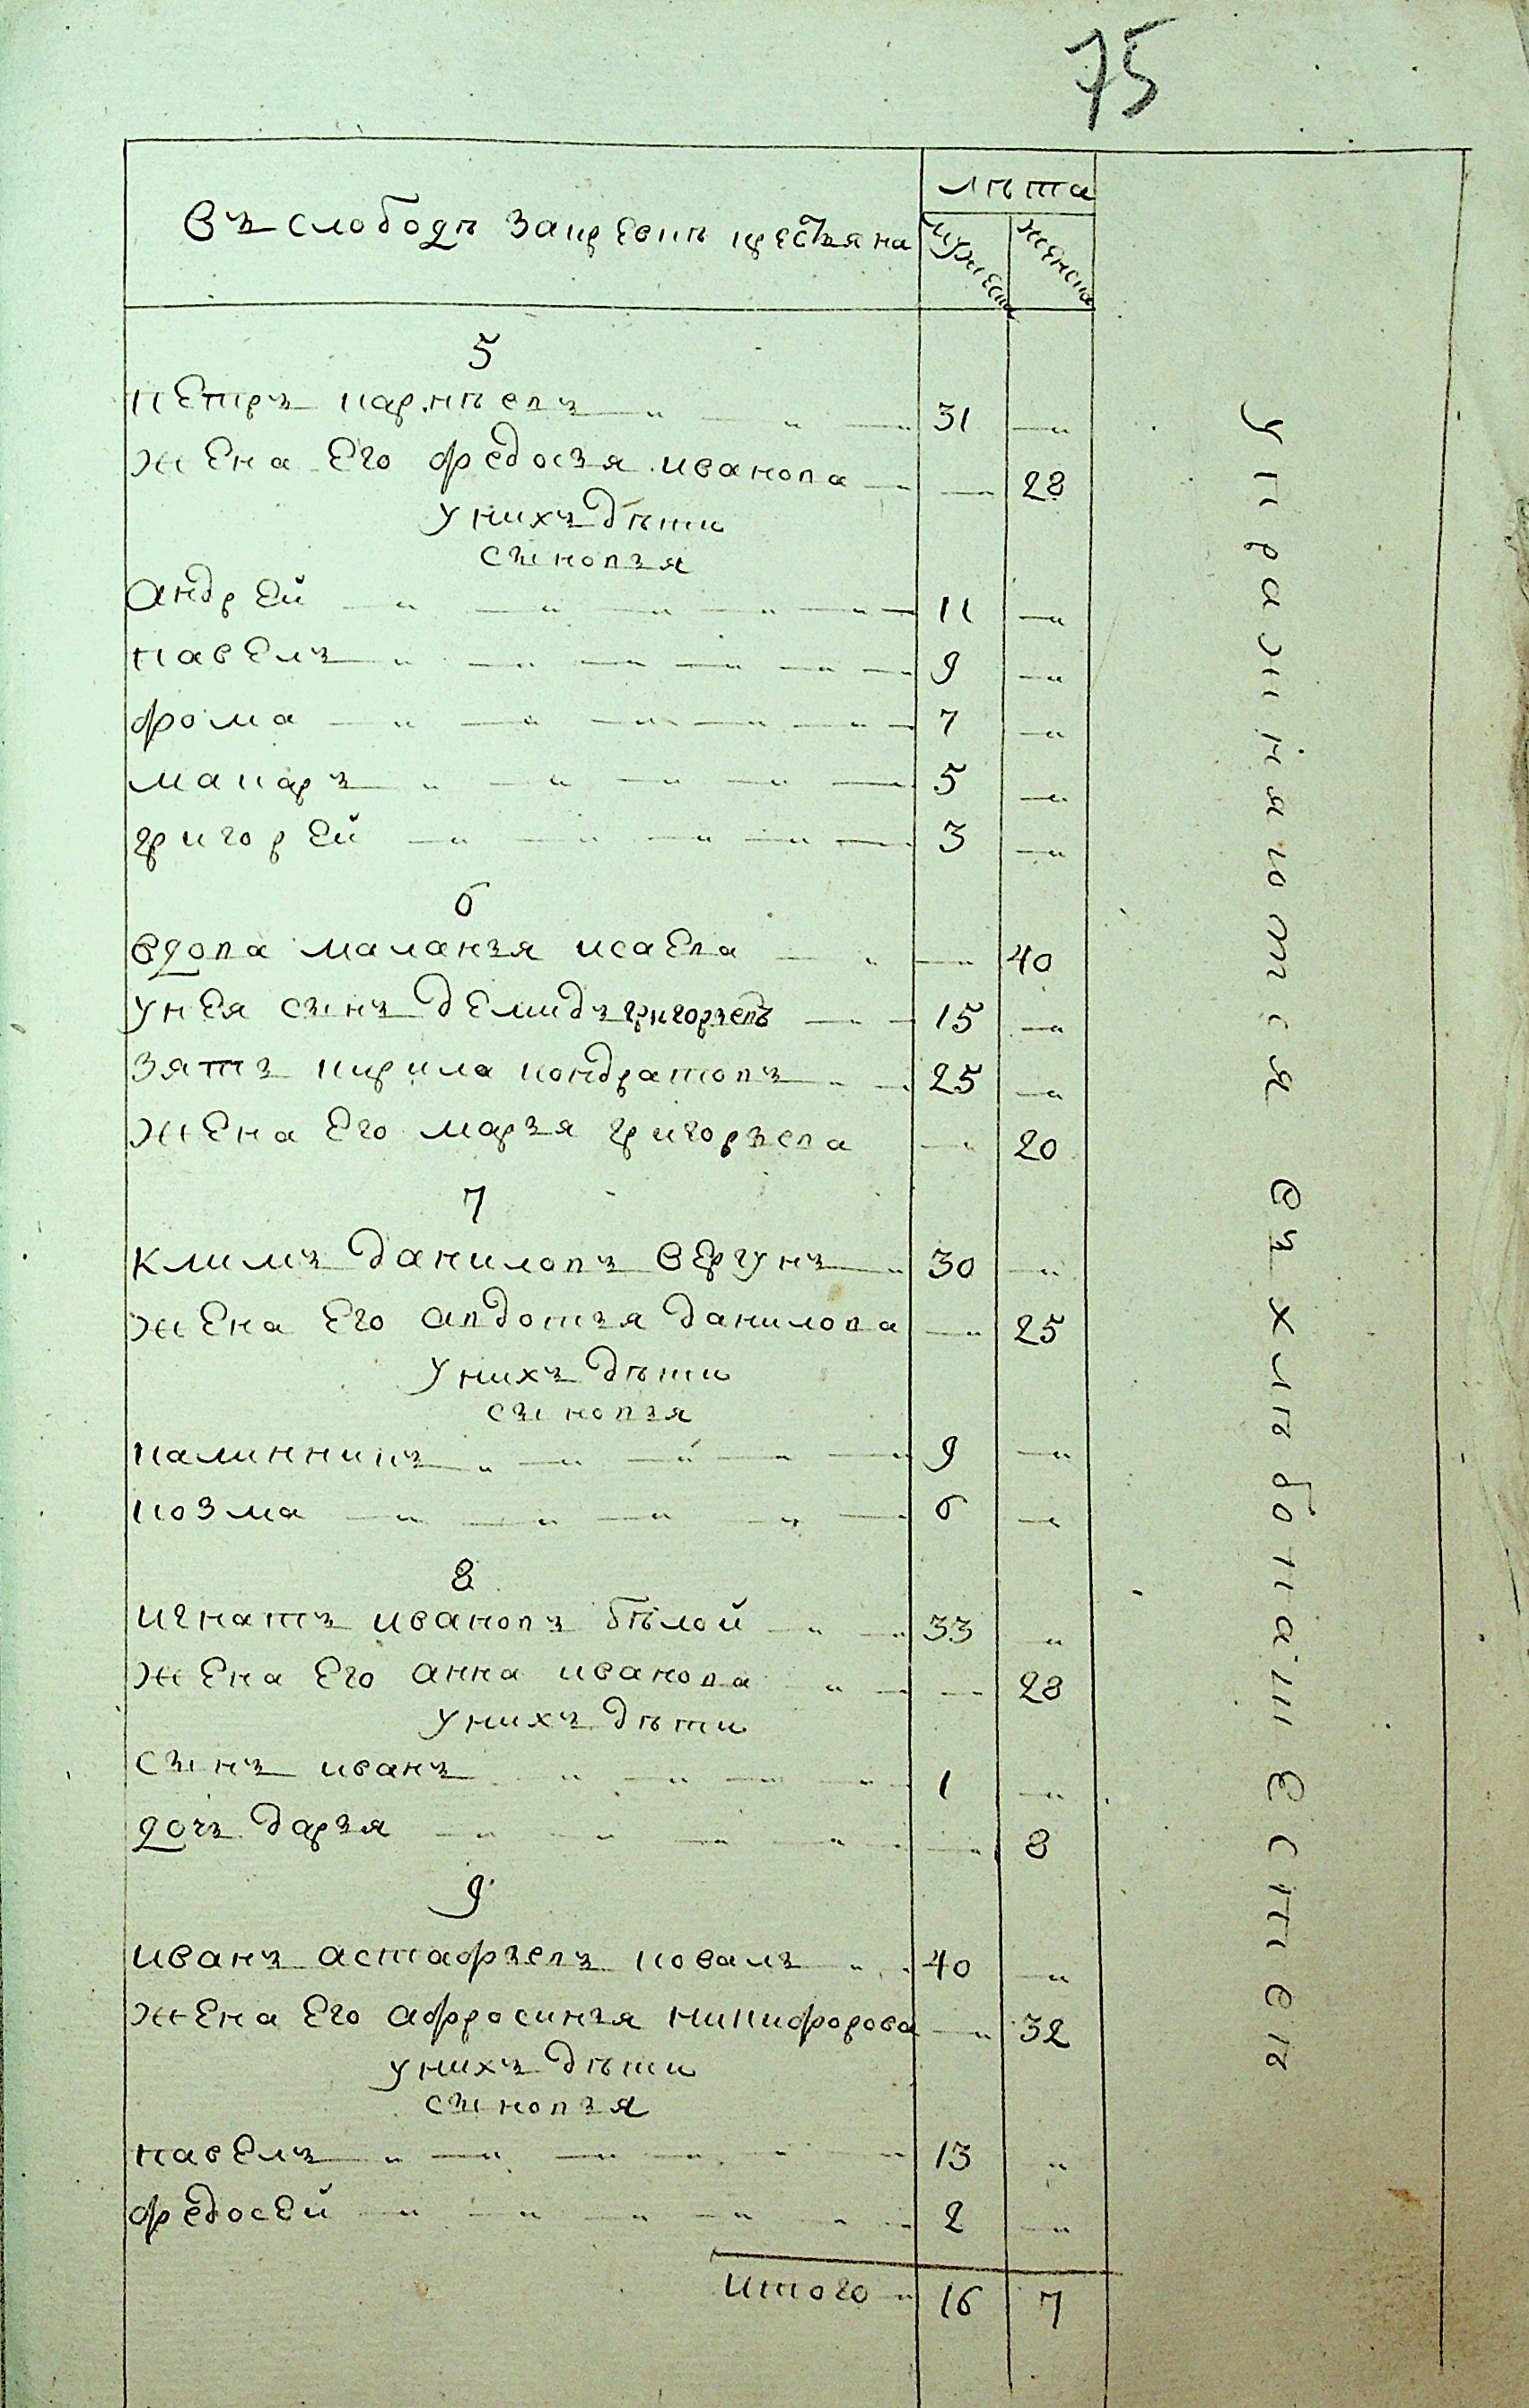 75
Въ слободѣ Зацревкѣ крестьяна
лѣта
мужеска
женска
5
петръ кармѣевъ 31
жена его федосья иванова 28
у нихъ дѣти
сыновья
андрей 11
павелъ 9
фома 7
макаръ 5
григорей 3
6
вдова маланья исаева 40
у нея сынъ демидъ григорьевъ 15
зять кирила кондратовъ 25
жена его марья григорьева 20
7
климъ даниловъ вергунъ 30
жена его авдотья данилова 25
у нихъ дѣти
сыновья
калинникъ 9
козма 6
8
игнатъ ивановъ бѣлой 33
жена его анна иванова 28
у нихъ дѣти
сынъ иванъ 1
дочь дарья 8
9
иванъ астафьевъ коваль 40
жена его афросинья никифорова 32
у нихъ дѣти
сыновья
павелъ 13
федосей 2
итого 16 7
упражняются въ хлѣбопашествѣ